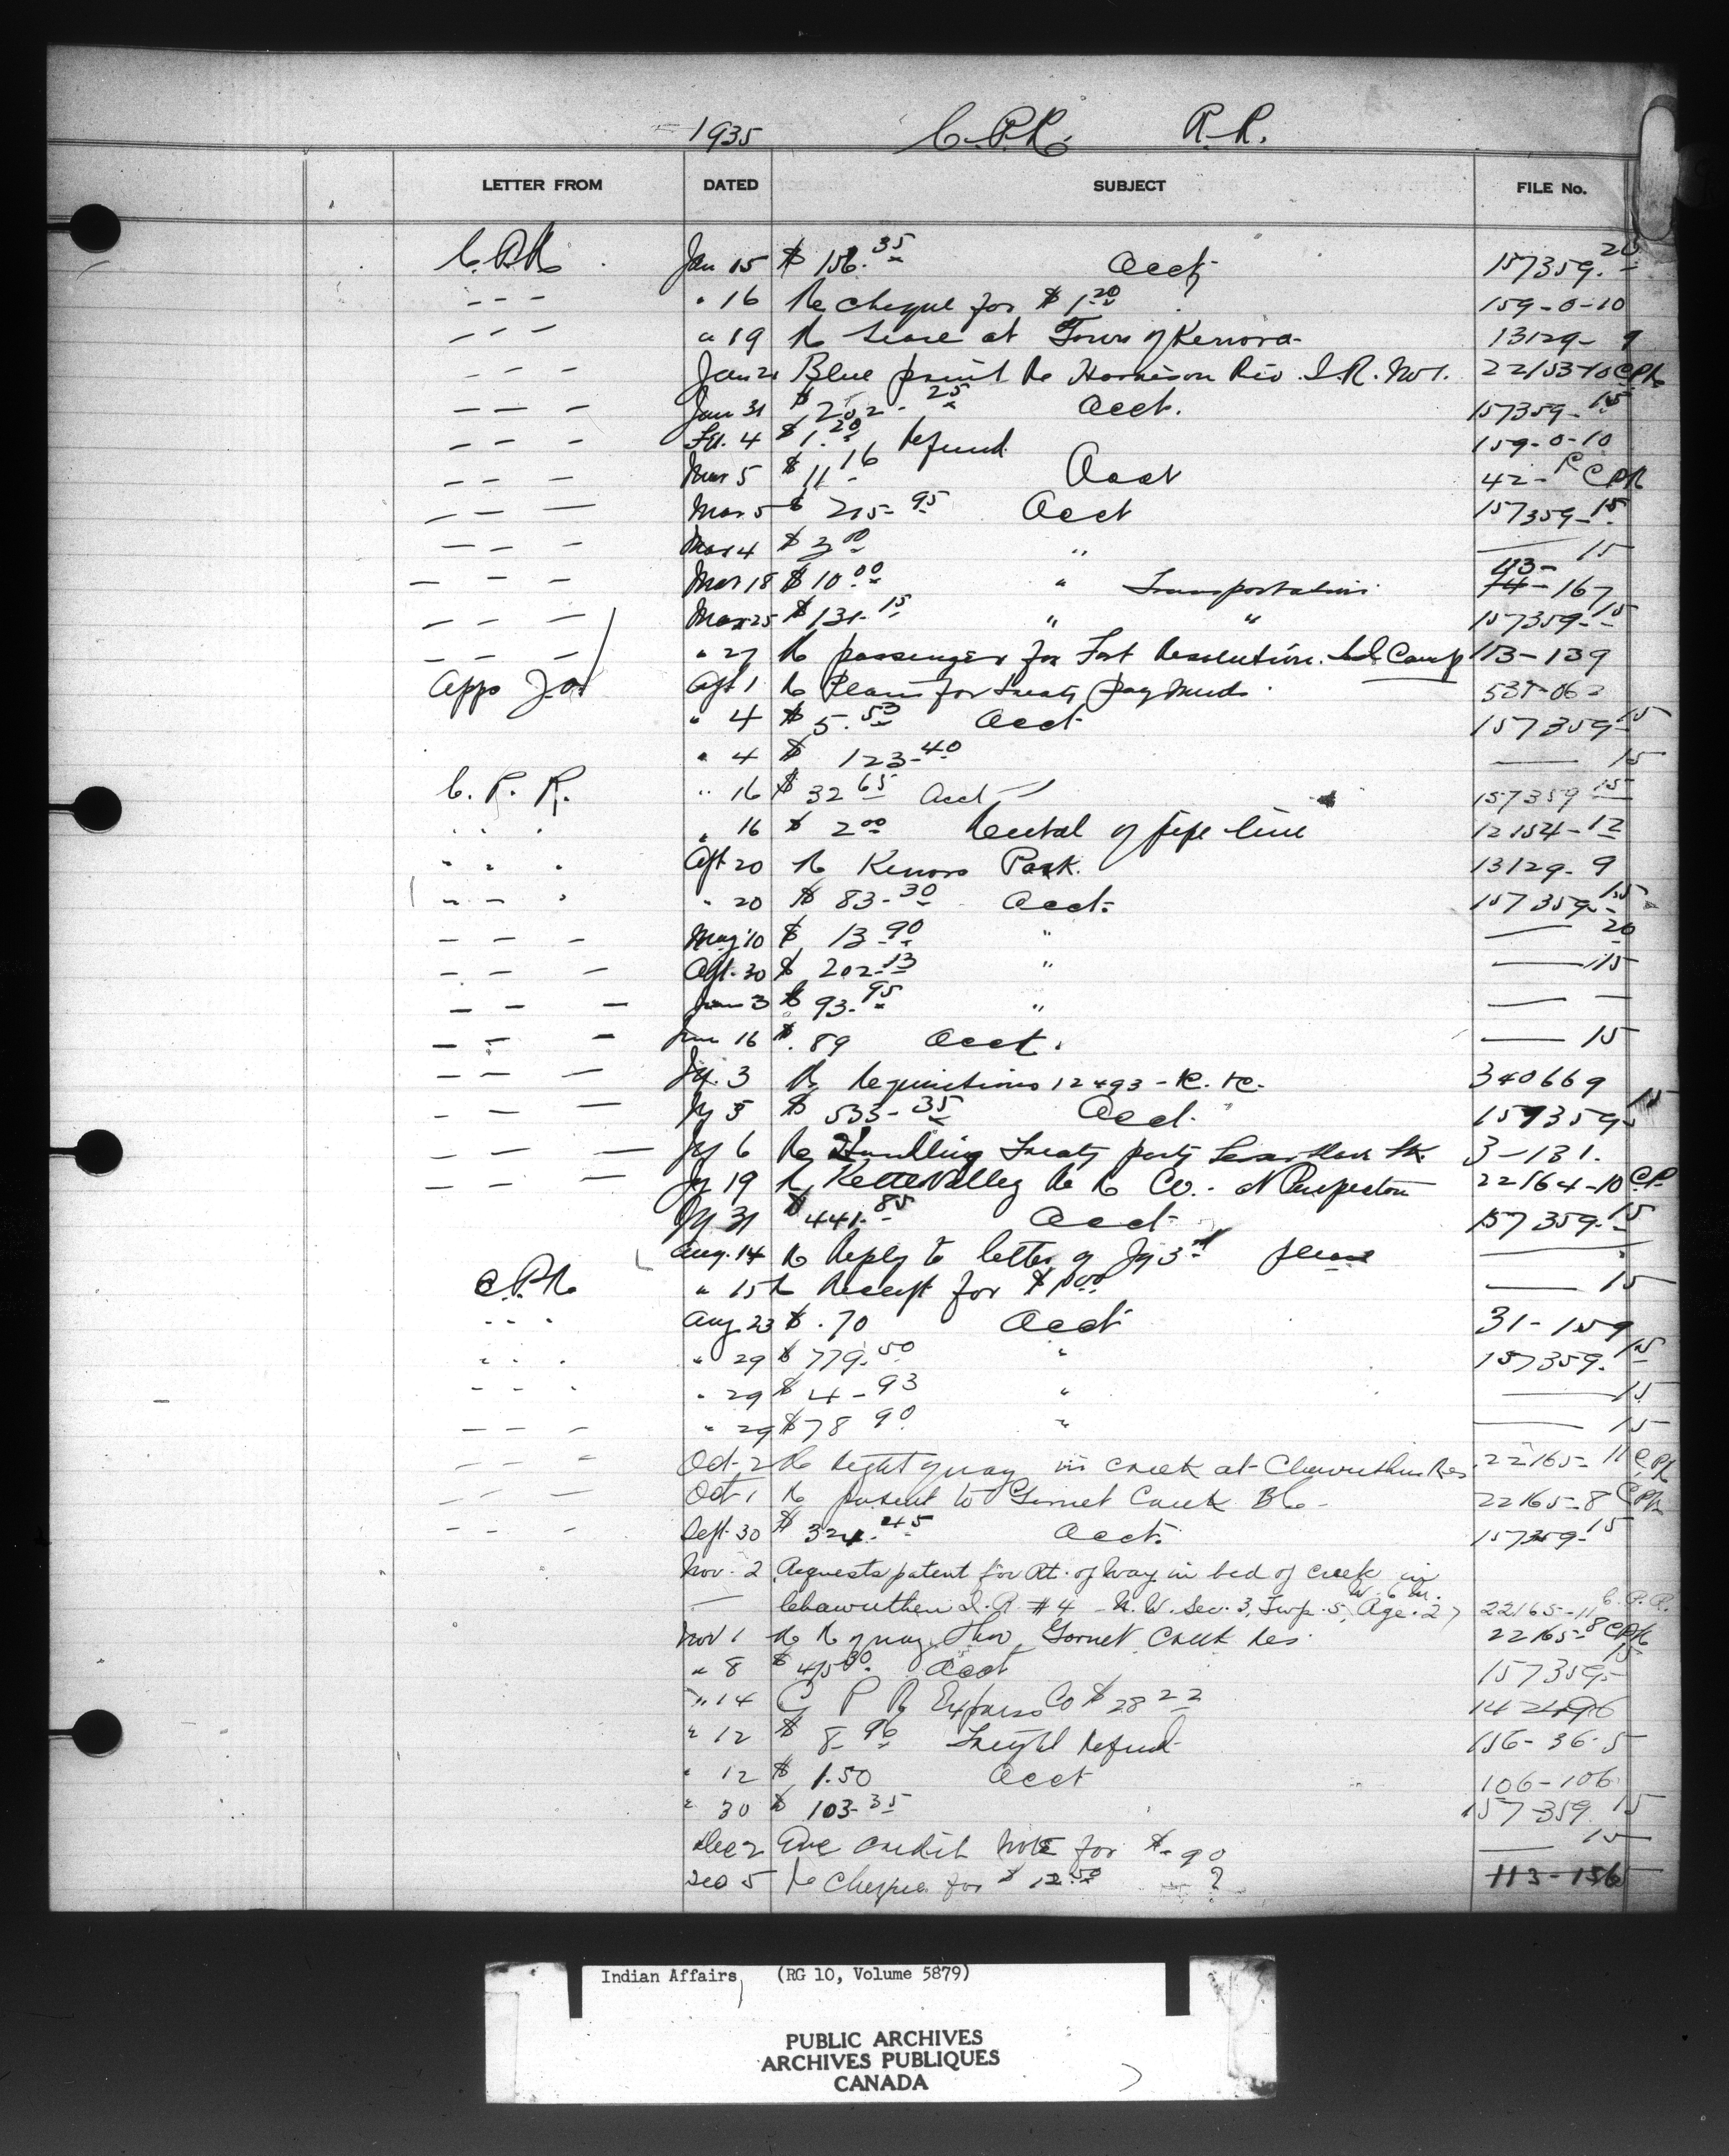 1935 C.P.R. R.R.
LETTER FROM DATED SUBJECT FILE No.
C.P.R. Jan 15 $ 156.35 Acct 157359-20
- - - " 16 Re cheque for $1.20 159-0-10
- - - " 19 Re lease at Town of Kenora 13129-9
- - - Jan 21 Blue print Re Harrison Riv. I.R. No 1. 22153-10 CPR
- - - Jan 31 $ 202.25 Acct. 157359-15
- - - Feb. 4 $1.20 Refund 159-0-10
- - - Mar 5 $11.16 Acct 42- CPR
- - - Mar 5 $ 215-95 Acct 157359-15
- - - Mar 4 $ 3.00 " — 15
- - - Mar 18 $10.00 " Transportation 113-167
- - - Mar 25 $131-15 " " 157359-15
- - - " 27 Re passenger for Fort Resolution. 113-139
Apps Apl 1 Re Plans for treaty payments 535-06
" 4 $ 5.53 Acct 157359-15
" 4 $ 123-40 — 15
C. P. R. " 16 $ 32.65 Acct 157359-15
" " " " 16 $ 2.00 Rental of pipe line 12154-12
" " " Apl 20 Re Kenora Park. 13129-9
" " " " 20 $ 83-30 Acct. 157359-15
- - - May 10 $ 13.90 " — 20
- - - Apl. 30 $ 202-13 " — 15
- - - Jun 3 $ 93.95 " — —
- - - Jun 16 $ .89 Acct. — 15
- - - Jy. 3 Re Requisitions 12493 - 340669
- - - Jy 5 $ 535-35 Acct. 157359-15
- - - Jy 6 Re Handling Treaty party 3-131.
- - - Jy 19 Re Kettle Valley Re R Co. - 22164-10 CP
Jy 31 $ 441.85 Acct 157359-15
Aug. 14 Re Reply to letter of Jy 3rd please —
C.P.R. " 15 Re Receipt for $1.00 — 15
" " " Aug 23 $ .70 Acct 31-159
" " " " 29 $ 779.50 " 157359-15
- - - " 29 $ 4-93 " — 15
- - - " 29 $78.90 " — 15
- - - Oct. 2 Re Right of way in creek at Chawuthen Res 22165-11 CPR
- - - Oct 1 Re patent to Creek BC - 22165-8 CPR
- - - Sept. 30 $ 324.45 Acct. 157359-15
Nov. 2 Requests patent for Rt. of Way in bed of creek in
— Chawuthen I.R. #4 N.W. Sec. 3, Twp. 5, Rge. 27 W. 6 M. 22165-11 C.P.R.
Nov 1 Re R of way thro Creek Res. 22165-8 CPR
" 8 $ 45.30 Acct 157359-15
" 14 C P R Express Co $ 28.22
" 12 $ 8.96 Freight Refund 156-36-5
" 12 $ 1.50 Acct 106-106
" 30 $ 103-35 157359-15
Dec 2 credit note for $ .90 — 15
Dec 5 Re Cheque for $ 12.50 ? 113-156
Indian Affairs, (RG 10, Volume 5879)
PUBLIC ARCHIVES
ARCHIVES PUBLIQUES
CANADA